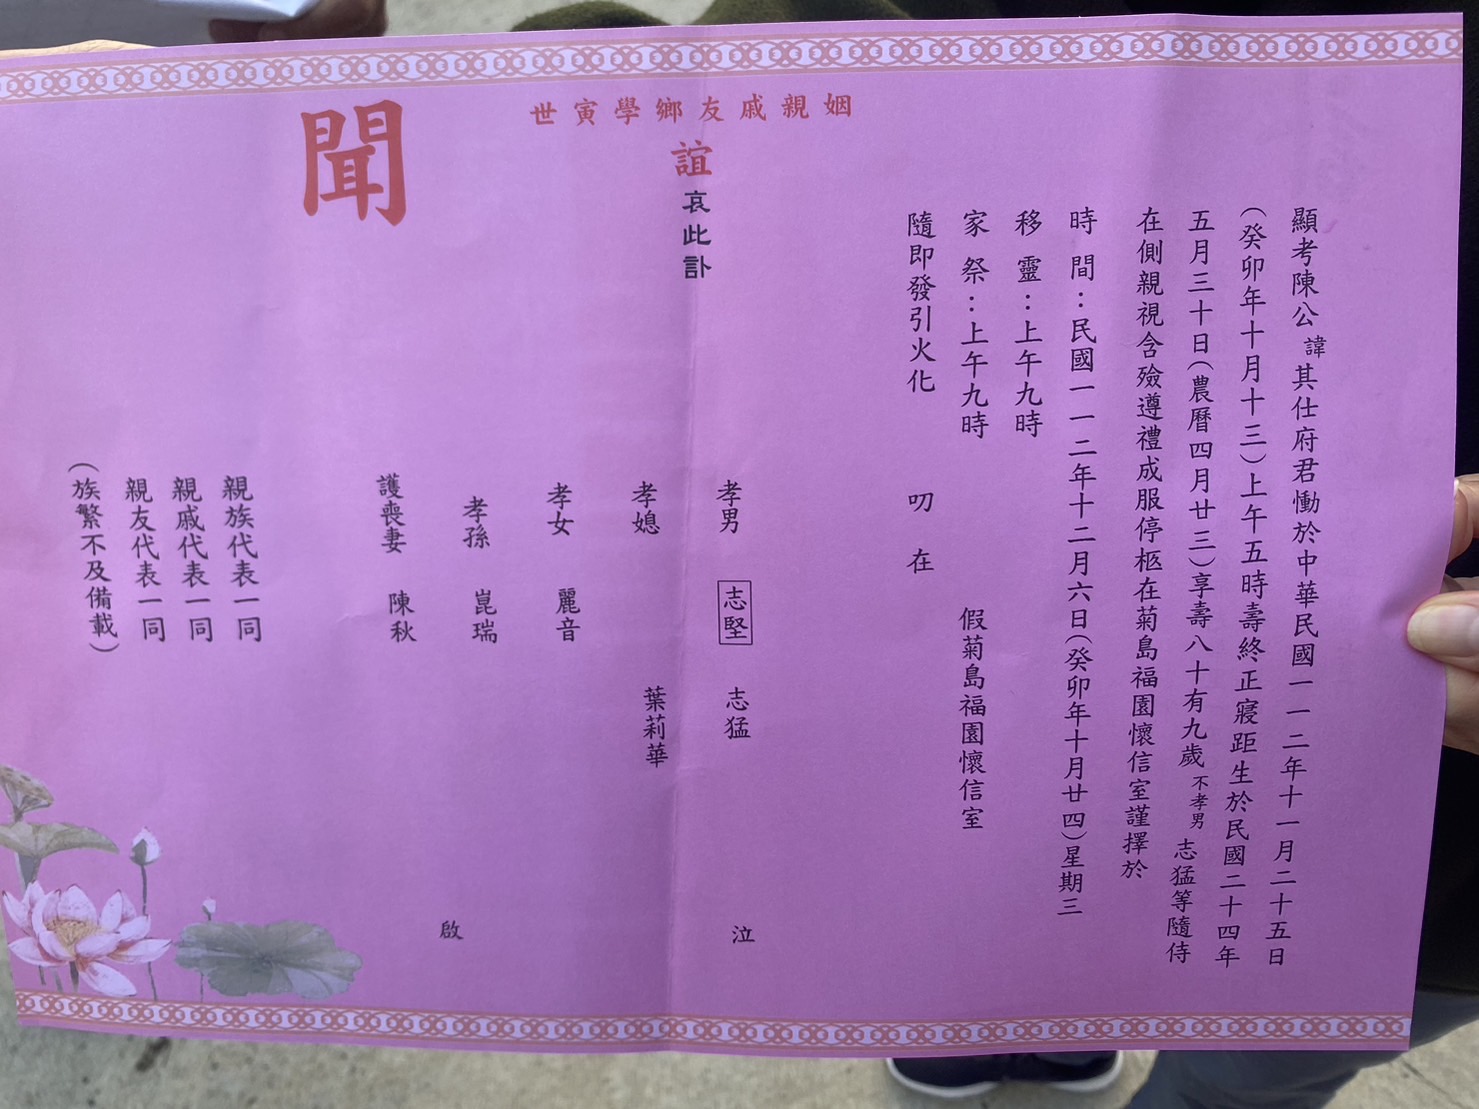 顯考陳公諱其仕府君慟於中華民國一一二年十一月二十五日
(癸卯年十月十三)上午五時壽終正寢距生於民國二十四年
五月三十日(農曆四月廿三)享壽八十有九歲不孝男志猛等隨侍
在側親視含殮遵禮成服停柩在菊島福園懷信室謹擇於
時間：民國一一二年十二月六日(癸卯年十月廿四)星期三
移靈：上午九時
家祭：上午九時 假菊島福園懷信室
隨即發引火化 叨在
姻親戚友鄉學寅世
誼哀此訃
聞
孝男 志堅 志猛 泣
孝媳 葉莉華
孝女 麗音
孝孫 崑瑞
啟
護喪妻 陳秋
親族代表一同
親戚代表一同
親友代表一同
(族繁不及備載)